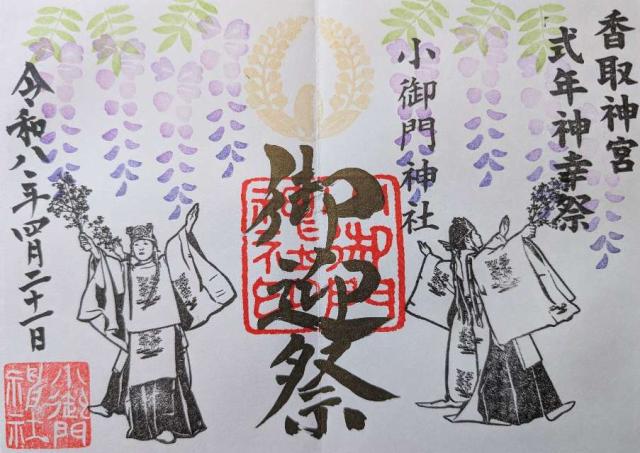 香取神宮
式年神幸祭
小御門神社
御迎祭
令和八年四月二十一日
小御門神社